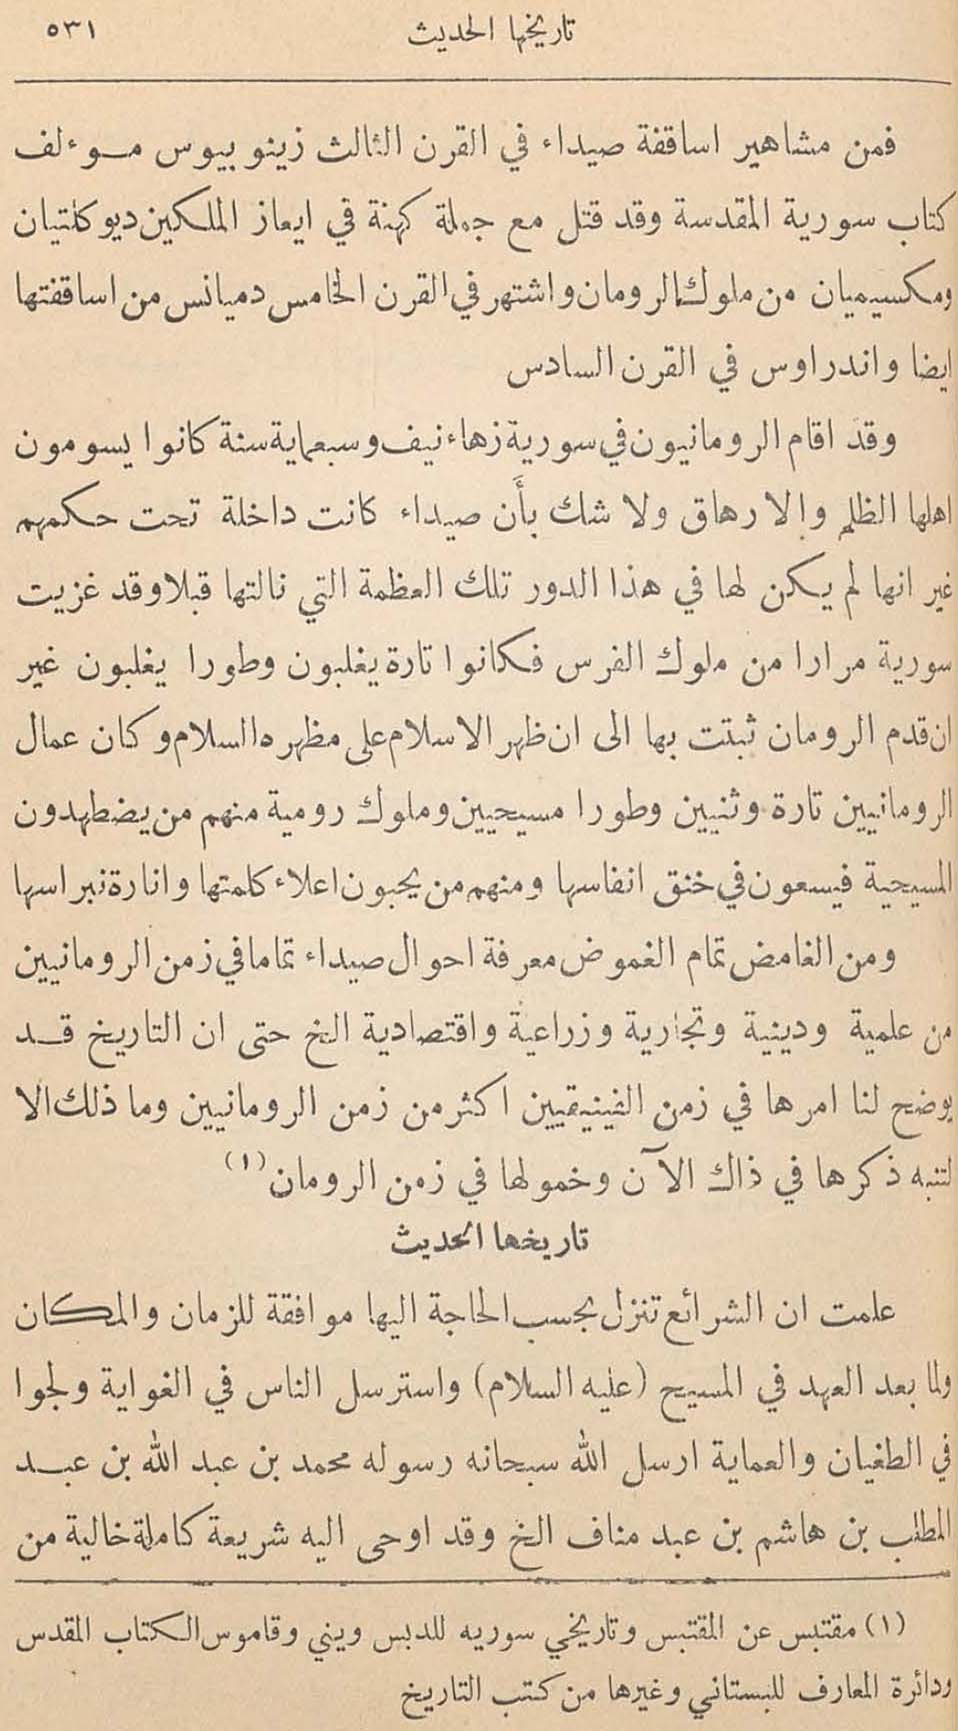 تاريخها الحديث ٥٣١
فمن مشاهير اساقفة صيداء في القرن الثالث زينو بيوس مـوءلف
كتاب سورية المقدسة وقد قتل مع جملة كهنة في ايعاز الملكين ديوكلتيان
ومكسيميان من ملوك الرومان واشتهر في القرن الخامس دميانس من اساقفتها
ايضا واندراوس في القرن السادس
وقد اقام الرومانيون في سورية زهاء نيف وسبعماية سنة كانوا يسومون
اهلها الظلم والارهاق ولا شك بأن صيداء كانت داخلة تحت حكمهم
غير انها لم يكن لها في هذا الدور تلك العظمة التي نالتها قبلا وقد غزيت
سورية مرارا من ملوك الفرس فكانوا تارة يغلبون وطورا يغلبون غير
ان قدم الرومان ثبتت بها الى ان ظهر الاسلام على مظهره السلام وكان عمال
الرومانيين تارة وثنيين وطورا مسيحيين وملوك رومية منهم من يضطهدون
المسيحية فيسعون في خنق انفاسها ومنهم من يحبون اعلاء كلمتها وانارة نبراسها
ومن الغامض تمام الغموض معرفة احوال صيداء تماما في زمن الرومانيين
من علمية ودينية وتجارية وزراعية واقتصادية الخ حتى ان التاريخ قـد
يوضح لنا امرها في زمن الفينيقيين اكثر من زمن الرومانيين وما ذلك الا
لتنبه ذكرها في ذاك الآن وخمولها في زمن الرومان (١)
تاريخها الحديث
علمت ان الشرائع تنزل بحسب الحاجة اليها موافقة للزمان والمكان
ولما بعد العهد في المسيح (عليه السلام) واسترسل الناس في الغواية ولجوا
في الطغيان والعماية ارسل الله سبحانه رسوله محمد بن عبد الله بن عبـد
المطلب بن هاشم بن عبد مناف الخ وقد اوحى اليه شريعة كاملة خالية من
(١) مقتبس عن المقتبس وتاريخي سوريه للدبس ويني وقاموس الكتاب المقدس
ودائرة المعارف للبستاني وغيرها من كتب التاريخ